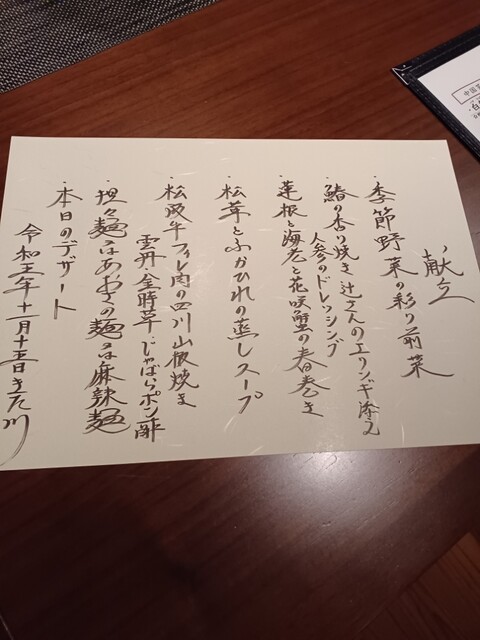 献立
・季節野菜の彩り前菜
・鰆の香り焼き 辻さんのエリンギ添え
人参のドレッシング
・蓮根と海老と花咲蟹の春巻き
・松茸とふかひれの蒸しスープ
・松阪牛フィレ肉の四川山椒焼き
雲丹 金時草 じゃばらポン酢
・担々麺又はあおさの麺又は麻辣麺
・本日のデザート
令和五年十一月十五日 き た川
中国